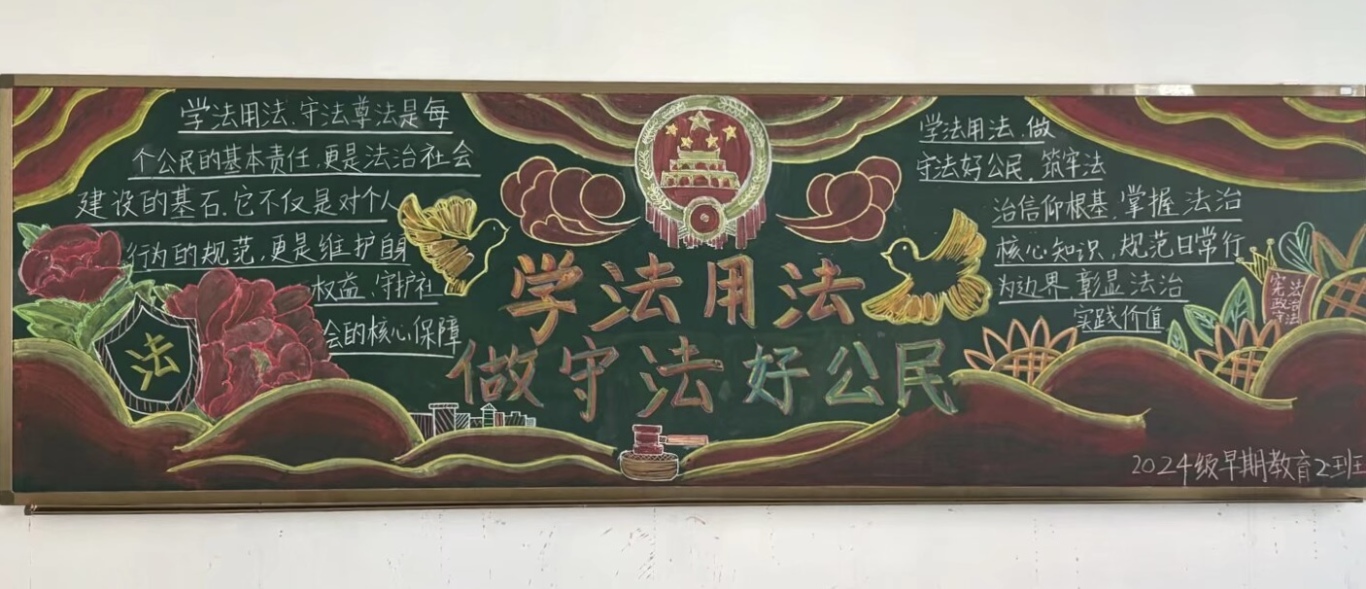 学法用法、守法尊法是每
个公民的基本责任,更是法治社会
建设的基石.它不仅是对个人
行为的规范,更是维护自身
权益、守护社
会的核心保障
法
学法用法
做守法好公民
学法用法、做
守法好公民,筑牢法
治信仰根基,掌握法治
核心知识,规范日常行
为边界,彰显法治
实践价值
2024级早期教育2班